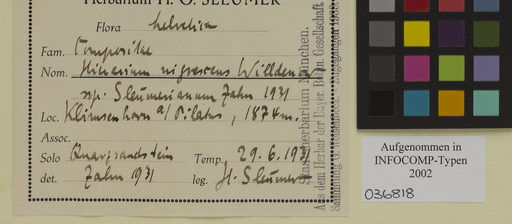 Herbarium H. O. SLEUMER
Flora helvetica
Fam. Compositae
Nom. Hieracium nigrescens Willdenow
ssp. Sleumerianum Zahn 1931
Loc. Klimsenhorn a/Pilatus, 1874 m.
Assoc.
Solo Quarzsandstein Temp. 29.6.1931
det. Zahn 1931 leg. H. Sleumer
Staatsherbarium München.
Aus dem Herbar der Regensb. Botan. Gesellschaft
Aufgenommen in
INFOCOMP-Typen
2002
036818